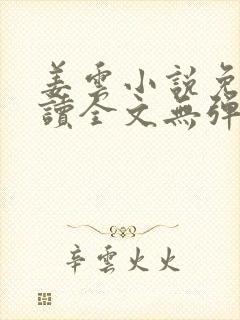 姜雲小說免
讀全文無彈
辛雲火火